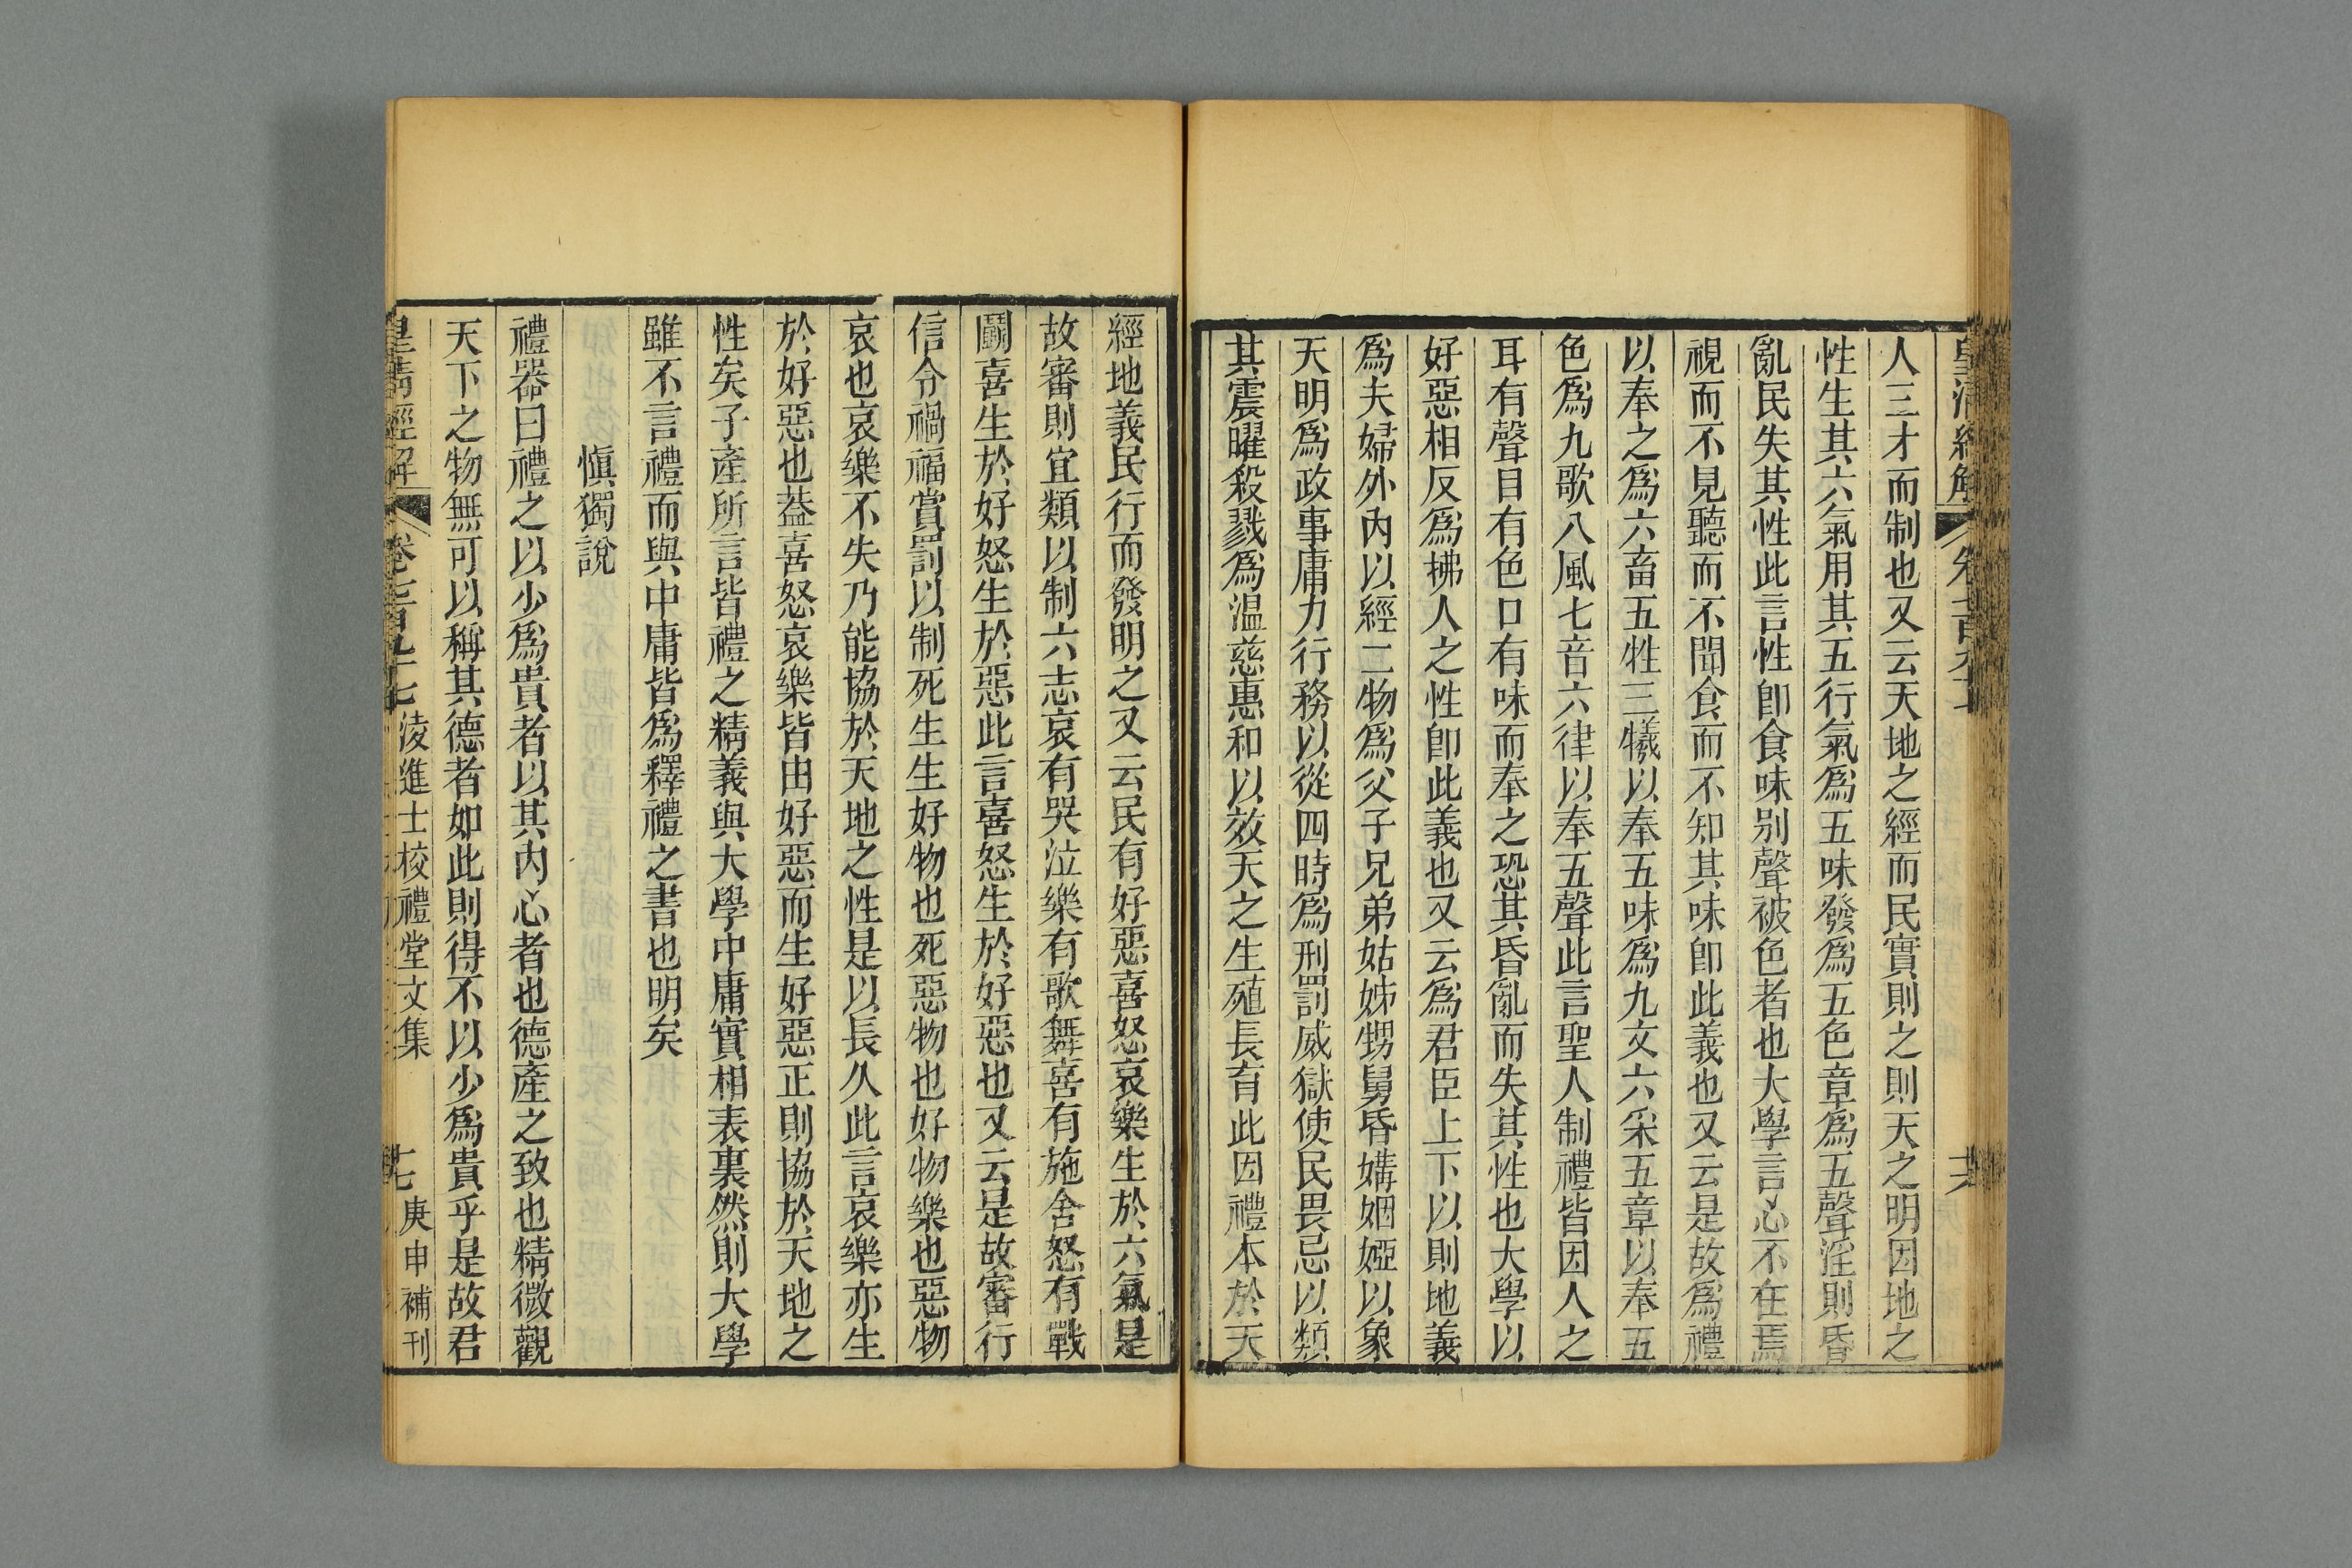 皇清經解 卷七百九十七 十六
人三才而制也又云天地之經而民實則之則天之明因地之
性生其六氣用其五行氣爲五味發爲五色章爲五聲淫則昏
亂民失其性此言性卽食味別聲被色者也大學言心不在焉
視而不見聽而不聞食而不知其味卽此義也又云是故爲禮
以奉之爲六畜五牲三犧以奉五味爲九文六采五章以奉五
色爲九歌八風七音六律以奉五聲此言聖人制禮皆因人之
耳有聲目有色口有味而奉之恐其昏亂而失其性也大學以
好惡相反爲拂人之性卽此義也又云爲君臣上下以則地義
爲夫婦外內以經二物爲父子兄弟姑姊甥舅昏媾姻婭以象
天明爲政事庸力行務以從四時爲刑罰威獄使民畏忌以類
其震曜殺戮爲温慈惠和以效天之生殖長育此因禮本於天
經地義民行而發明之又云民有好惡喜怒哀樂生於六氣是
故審則宜類以制六志哀有哭泣樂有歌舞喜有施舍怒有戰
鬭喜生於好怒生於惡此言喜怒生於好惡也又云是故審行
信令禍福賞罰以制死生生好物也死惡物也好物樂也惡物
哀也哀樂不失乃能協於天地之性是以長久此言哀樂亦生
於好惡也葢喜怒哀樂皆由好惡而生好惡正則協於天地之
性矣子產所言皆禮之精義與大學中庸實相表裏然則大學
雖不言禮而與中庸皆爲釋禮之書也明矣
愼獨說
禮器曰禮之以少爲貴者以其內心者也德產之致也精微觀
天下之物無可以稱其德者如此則得不以少爲貴乎是故君
皇清經解 卷七百九十七 淩進士校禮堂文集 十七 庚申補刊